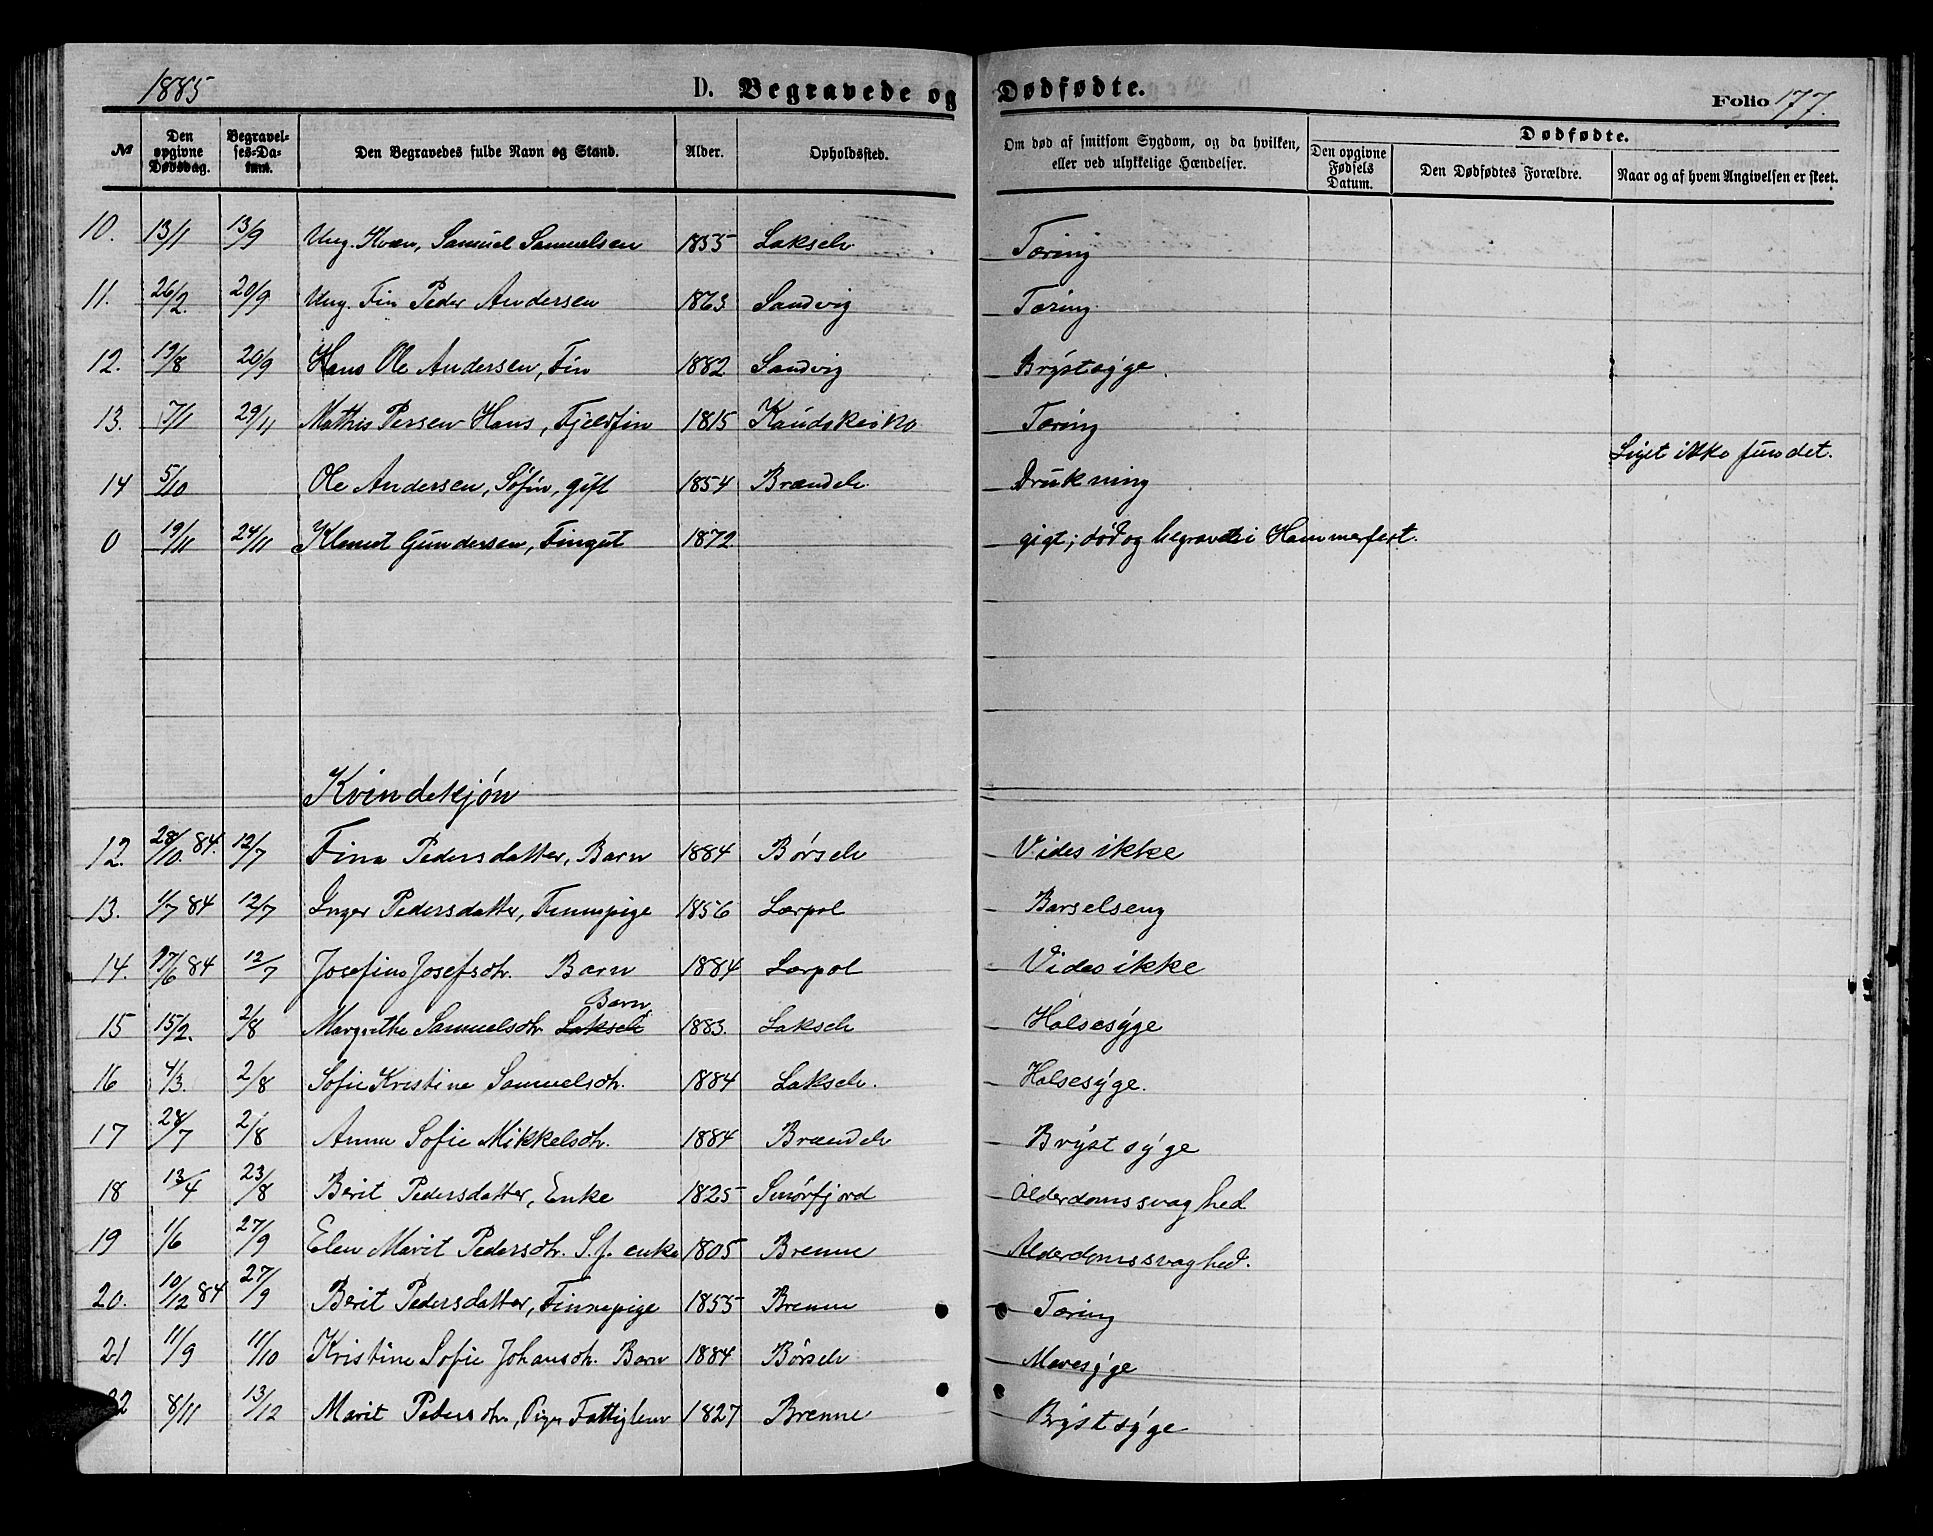 1885 D. Begravede og Dødfødte. Folio 177.
№ Den opgivne Dødsdag. Begravelses-Datum. Den Begravedes fulde Navn og Stand. Alder. Opholdssted. Om død af smitsom Sygdom, og da hvilken, eller ved ulykkelige Hændelser. Dødfødte. Den opgivne Fødsels Datum. Den Dødfødtes Forældre. Naar og af hvem Angivelsen er skeet.
10. 13/1 13/9 Ung. Kvæn, Samuel Samuelsen 1855 Lakselv Tæring
11. 26/2. 20/9 Ung. Fin Peder Andersen 1863 Sandvig Tæring
12. 19/8 20/9 Hans Ole Andersen, Fin 1882 Sandvig Brýstsýge.
13. 7/1 29/11 Mathis Persen Hans, Fjeldfin 1815 Kaudokeino Tæring
14 5/10 Ole Andersen, Søfin, gift 1854 Brændelv Drukning Liget ikke fundet.
0 19/11 24/11 Klemet Gundersen, Fingut 1872 gigt; død og begravet i Hammerfest.
Kvindekjøn
12. 28/10 84. 12/7 Fina Pedersdatter, Barn 1884 Børselv Vides ikke
13. 1/7 84 12/7 Inger Pedersdatter, Finnepige 1856 Lærpol Barselseng
14. 27/6 84 12/7 Josefine Josefsdtr. Barn 1884 Lærpol Vides ikke
15 15/2. 2/8 Margrethe Samuelsdtr. Lakselv Barn 1883. Lakselv Halsesýge
16 4/3. 2/8 Sofie Kristine Samuelsdtr. 1884 Lakselv. Halsesýge.
17 28/7 2/8 Anna Sofie Mikkelsdtr. 1884 Brændelv Brýstsýge
18 13/4 23/8 Berit Pedersdatter, Enke 1825 Smørfjord Alderdomssvaghed
19 1/6 27/9 Elen Marit Pedersdtr. S.f. enke 1805 Brenne Alderdomssvaghed.
20. 10/12 84 27/9 Berit Pedersdatter, Finnepige 1855 Brenne Tæring
21 11/9 11/10 Kristine Sofie Johansdtr. Barn 1884 Børselv Mavesýge
22 8/11 13/12 Marit Pedersdtr., Pige Fattiglem 1827 Brenne Brýstsýge